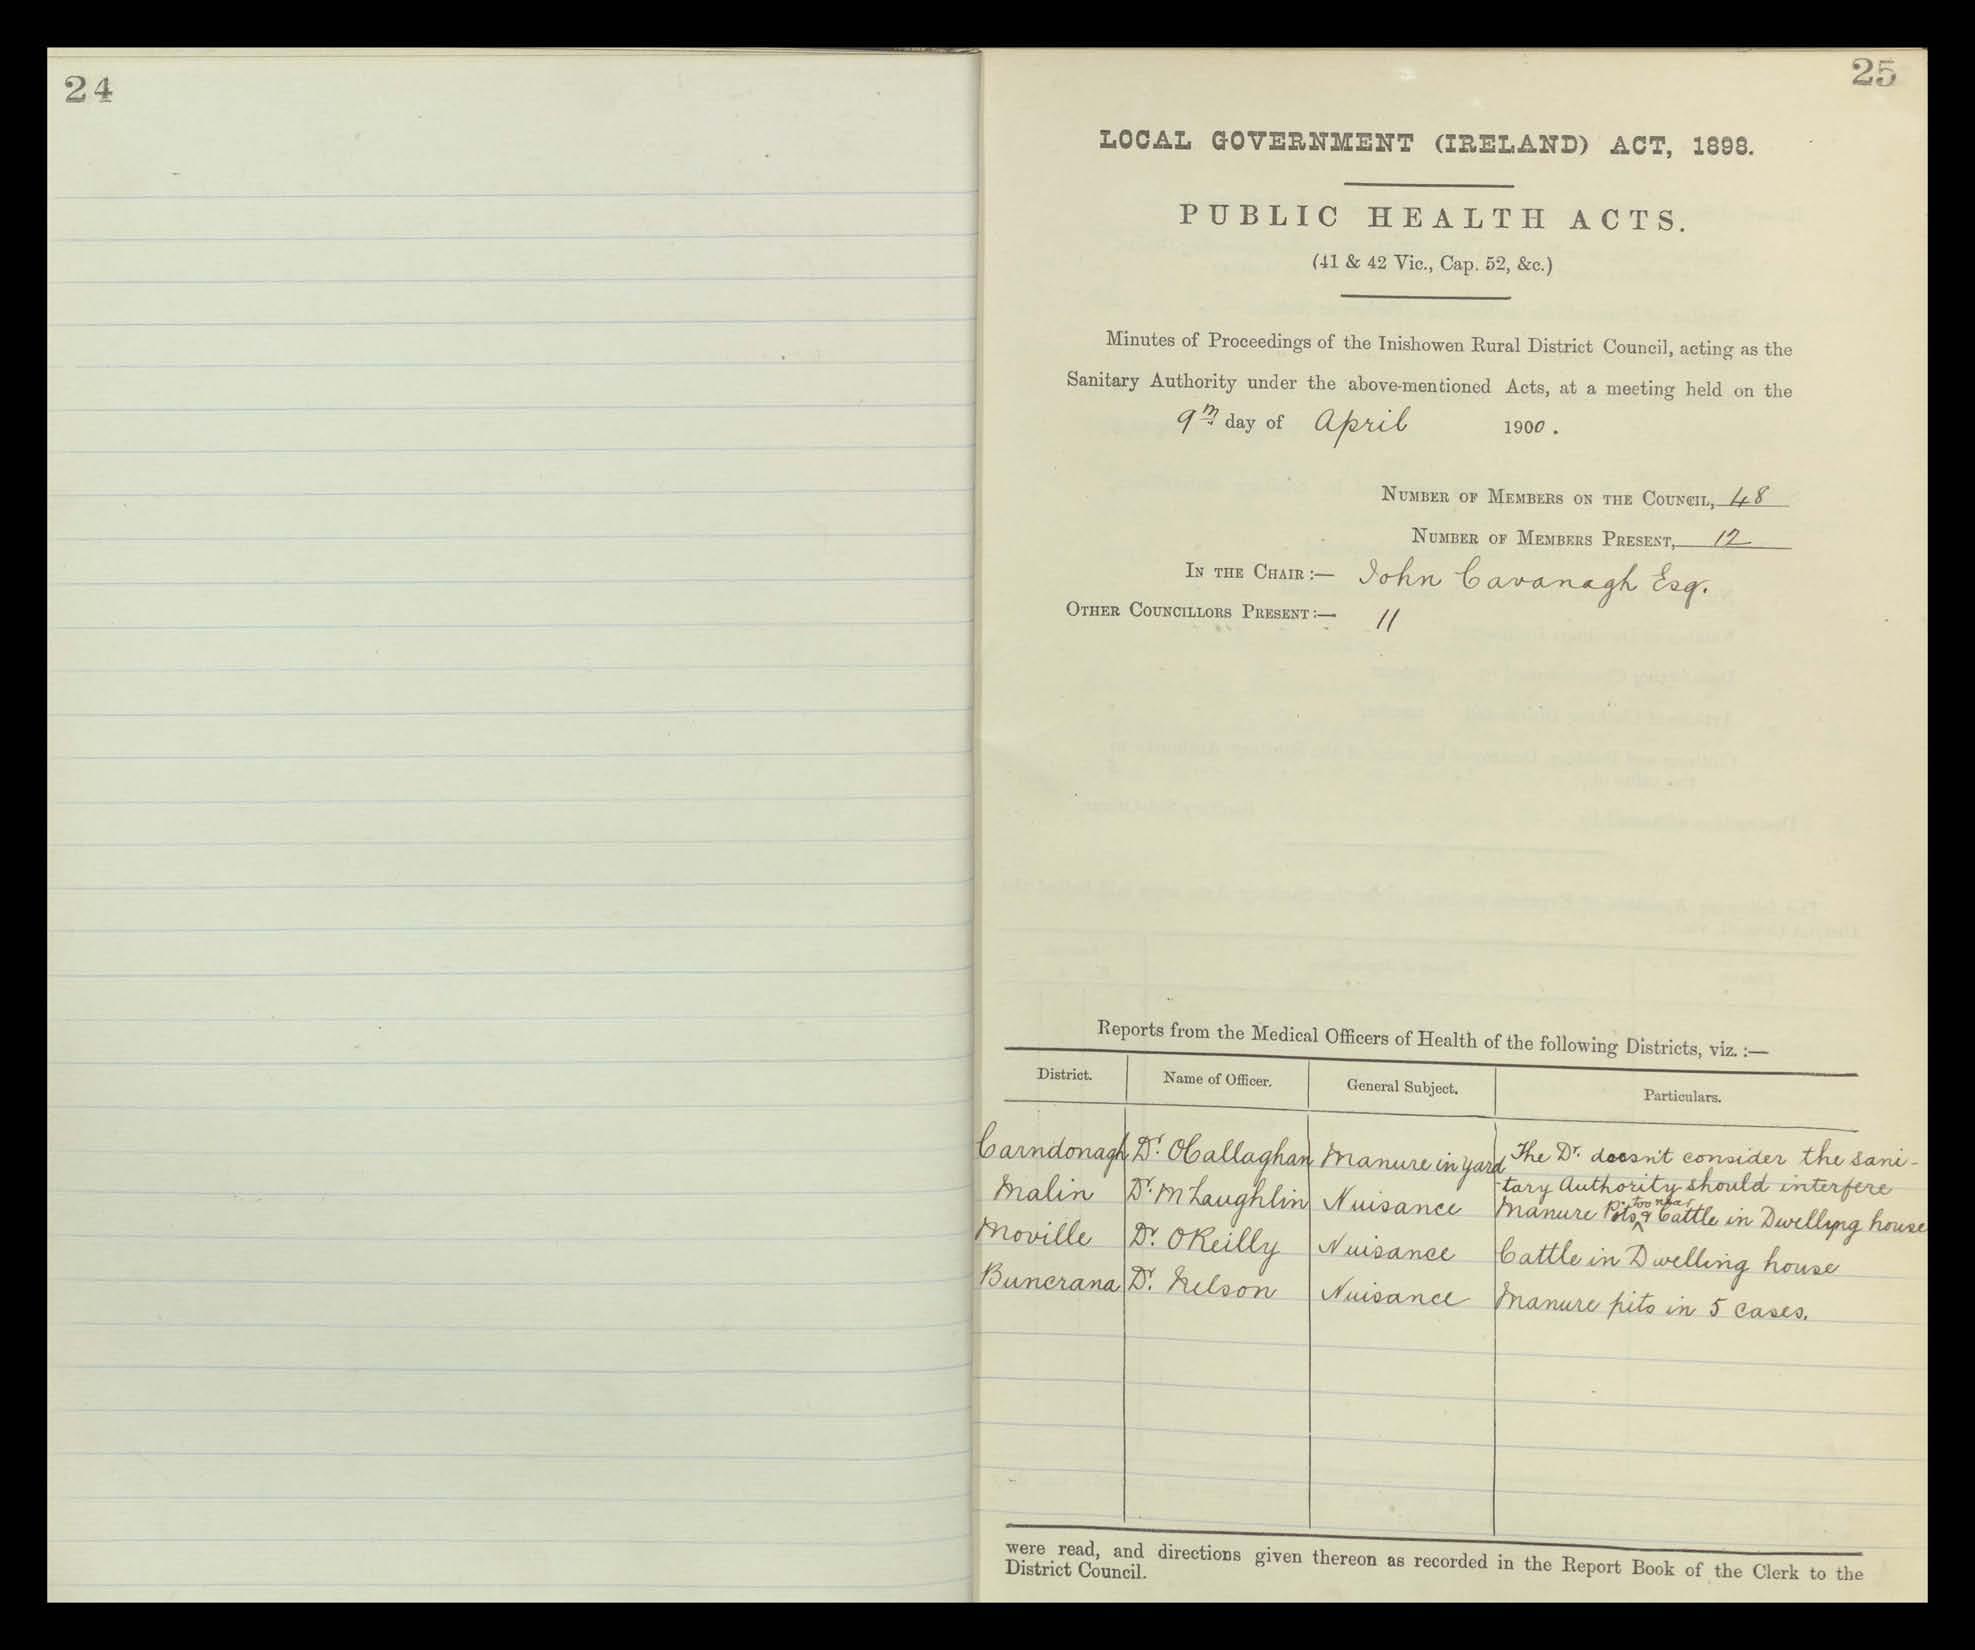 24
25
LOCAL GOVERNMENT (IRELAND) ACT, 1898.
PUBLIC HEALTH ACTS.
(41 & 42 Vic., Cap. 52, &c.)
Minutes of Proceedings of the Inishowen Rural District Council, acting as the
Sanitary Authority under the above-mentioned Acts, at a meeting held on the
9th day of April 1900.
NUMBER OF MEMBERS ON THE COUNCIL, 48
NUMBER OF MEMBERS PRESENT, 12
IN THE CHAIR :— John Cavanagh Esq.
OTHER COUNCILLORS PRESENT :— 11
Reports from the Medical Officers of Health of the following Districts, viz. :—
District. Name of Officer. General Subject. Particulars.
Carndonagh Dr. OCallaghan Manure in yard The Dr. doesn't consider the sani-
-tary Authority should interfere
Malin Dr. McLaughlin Nuisance Manure Pits too near & Cattle in Dwelling house
Moville Dr. OReilly Nuisance Cattle in Dwelling house
Buncrana Dr. Nelson Nuisance Manure pits in 5 cases.
were read, and directions given thereon as recorded in the Report Book of the Clerk to the
District Council.